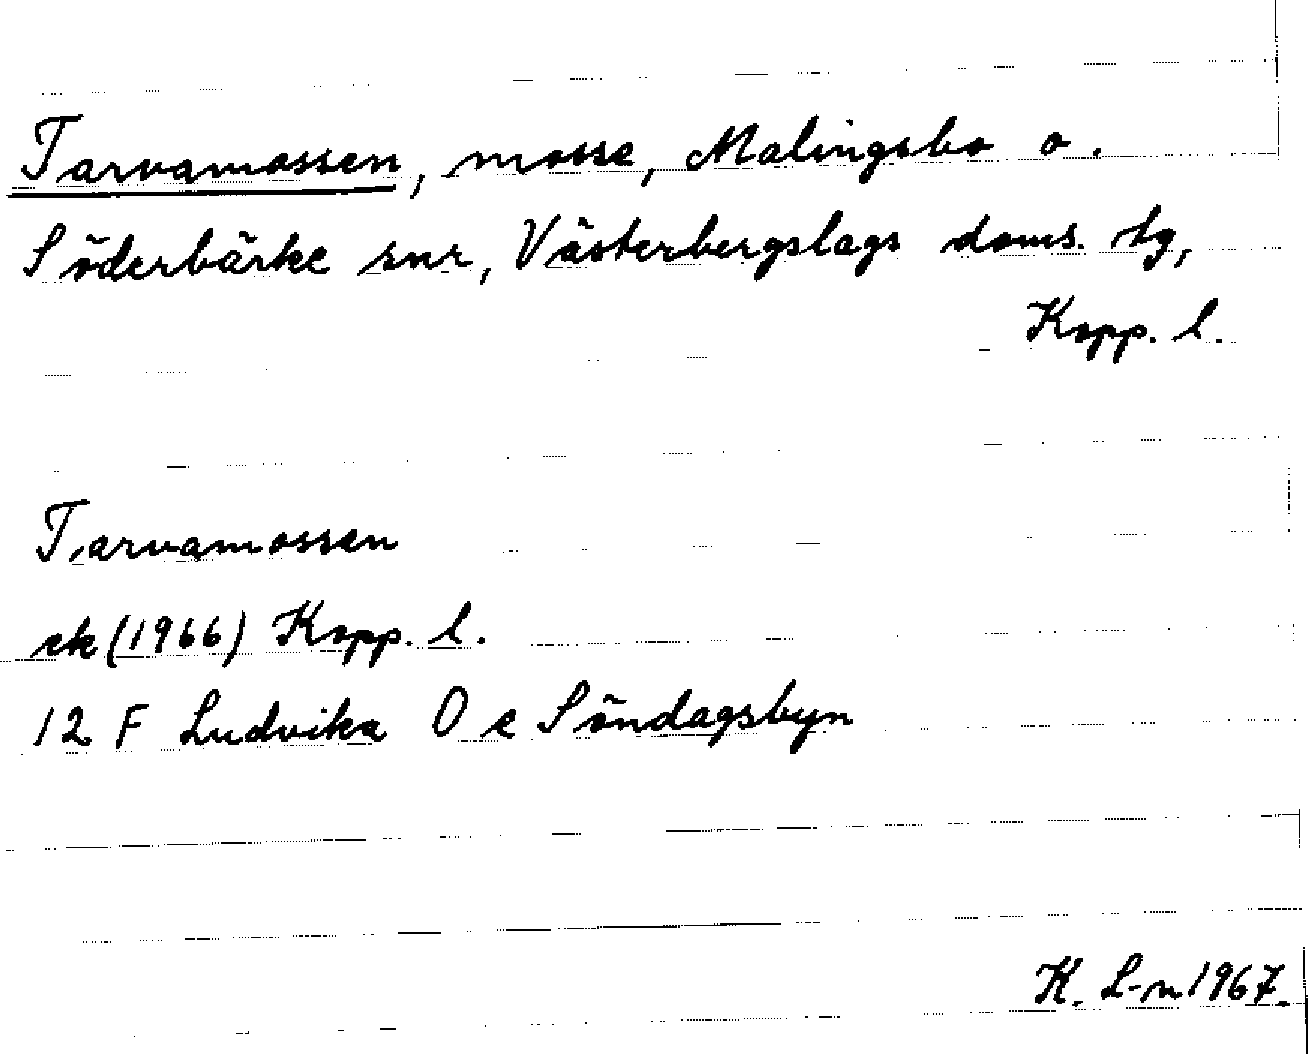 Tarvamossen, mosse, Malingsbo o.
Söderbärke snr, Västerbergslags doms. tg,
Kopp. l.
Tarvamossen
ek (1966) Kopp. l.
12 F Ludvika O e Söndagsbyn
K. L-n 1967.